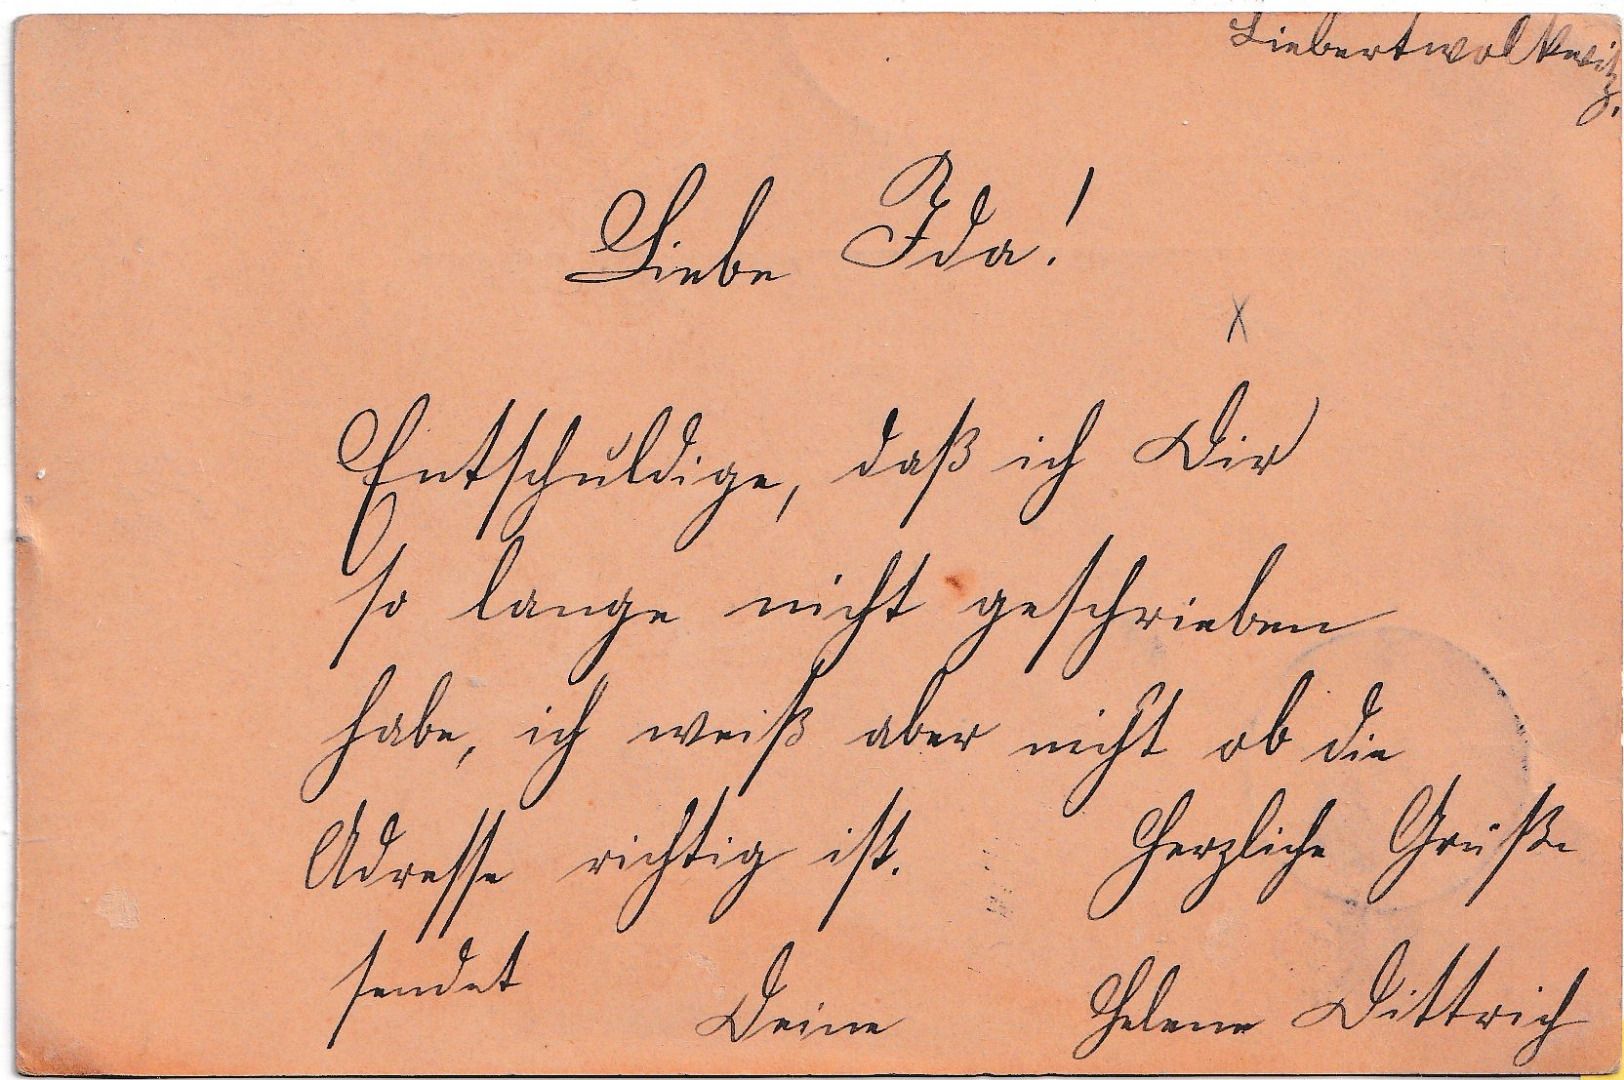 Liebertwolkwitz.
Liebe Ida!
Entschuldige, daß ich Dir
so lange nicht geschrieben
habe, ich weiß aber nicht ob die
Adresse richtig ist. Herzliche Grüße
sendet Deine Helene Dittrich